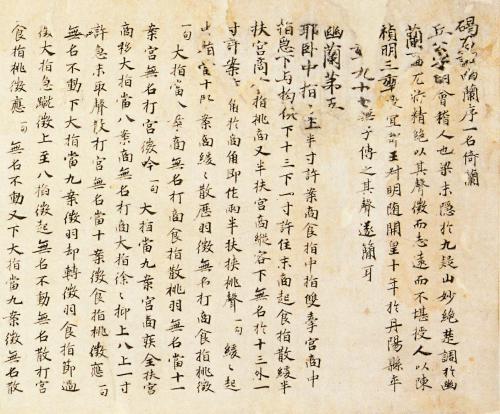 碣石調幽蘭序一名倚蘭
丘公字明會稽人也梁末隱於九疑山妙絕楚調於幽
蘭一曲尤特精絕以其聲微而志遠而不堪授人以陳
禎明三年授宜都王叔明隨開皇十年於丹陽縣卒
年九十七無子傳之其聲遂簡耳
幽蘭第五
耶臥中指十上半寸許案商食指中指雙牽宮商中
指急下与拘俱下十三下一寸許住末商起食指散緩半
扶宮商食指挑商又半扶宮商縱容下無名於十三外一
寸許案商角於商角即作兩半扶挾挑聲一句緩緩起
指當十案商緩緩散歷羽徵無名打商食指挑徵
一句大指當八案商無名打商食指散挑羽無名當十一
案宮商無名打宮徵吟一句大指當九案宮商疾全扶宮
商移大指當八案商無名打商大指徐徐抑上八上一寸
許急末取聲散打宮無名當十案徵食指挑徵應一句
無名不動下大指當九案徵羽却轉徵羽食指節過
徵大指急蹴徵上至八抑徵起無名不動無名散打宮
食指挑徵應一句無名不動又下大指當九案徵無名散